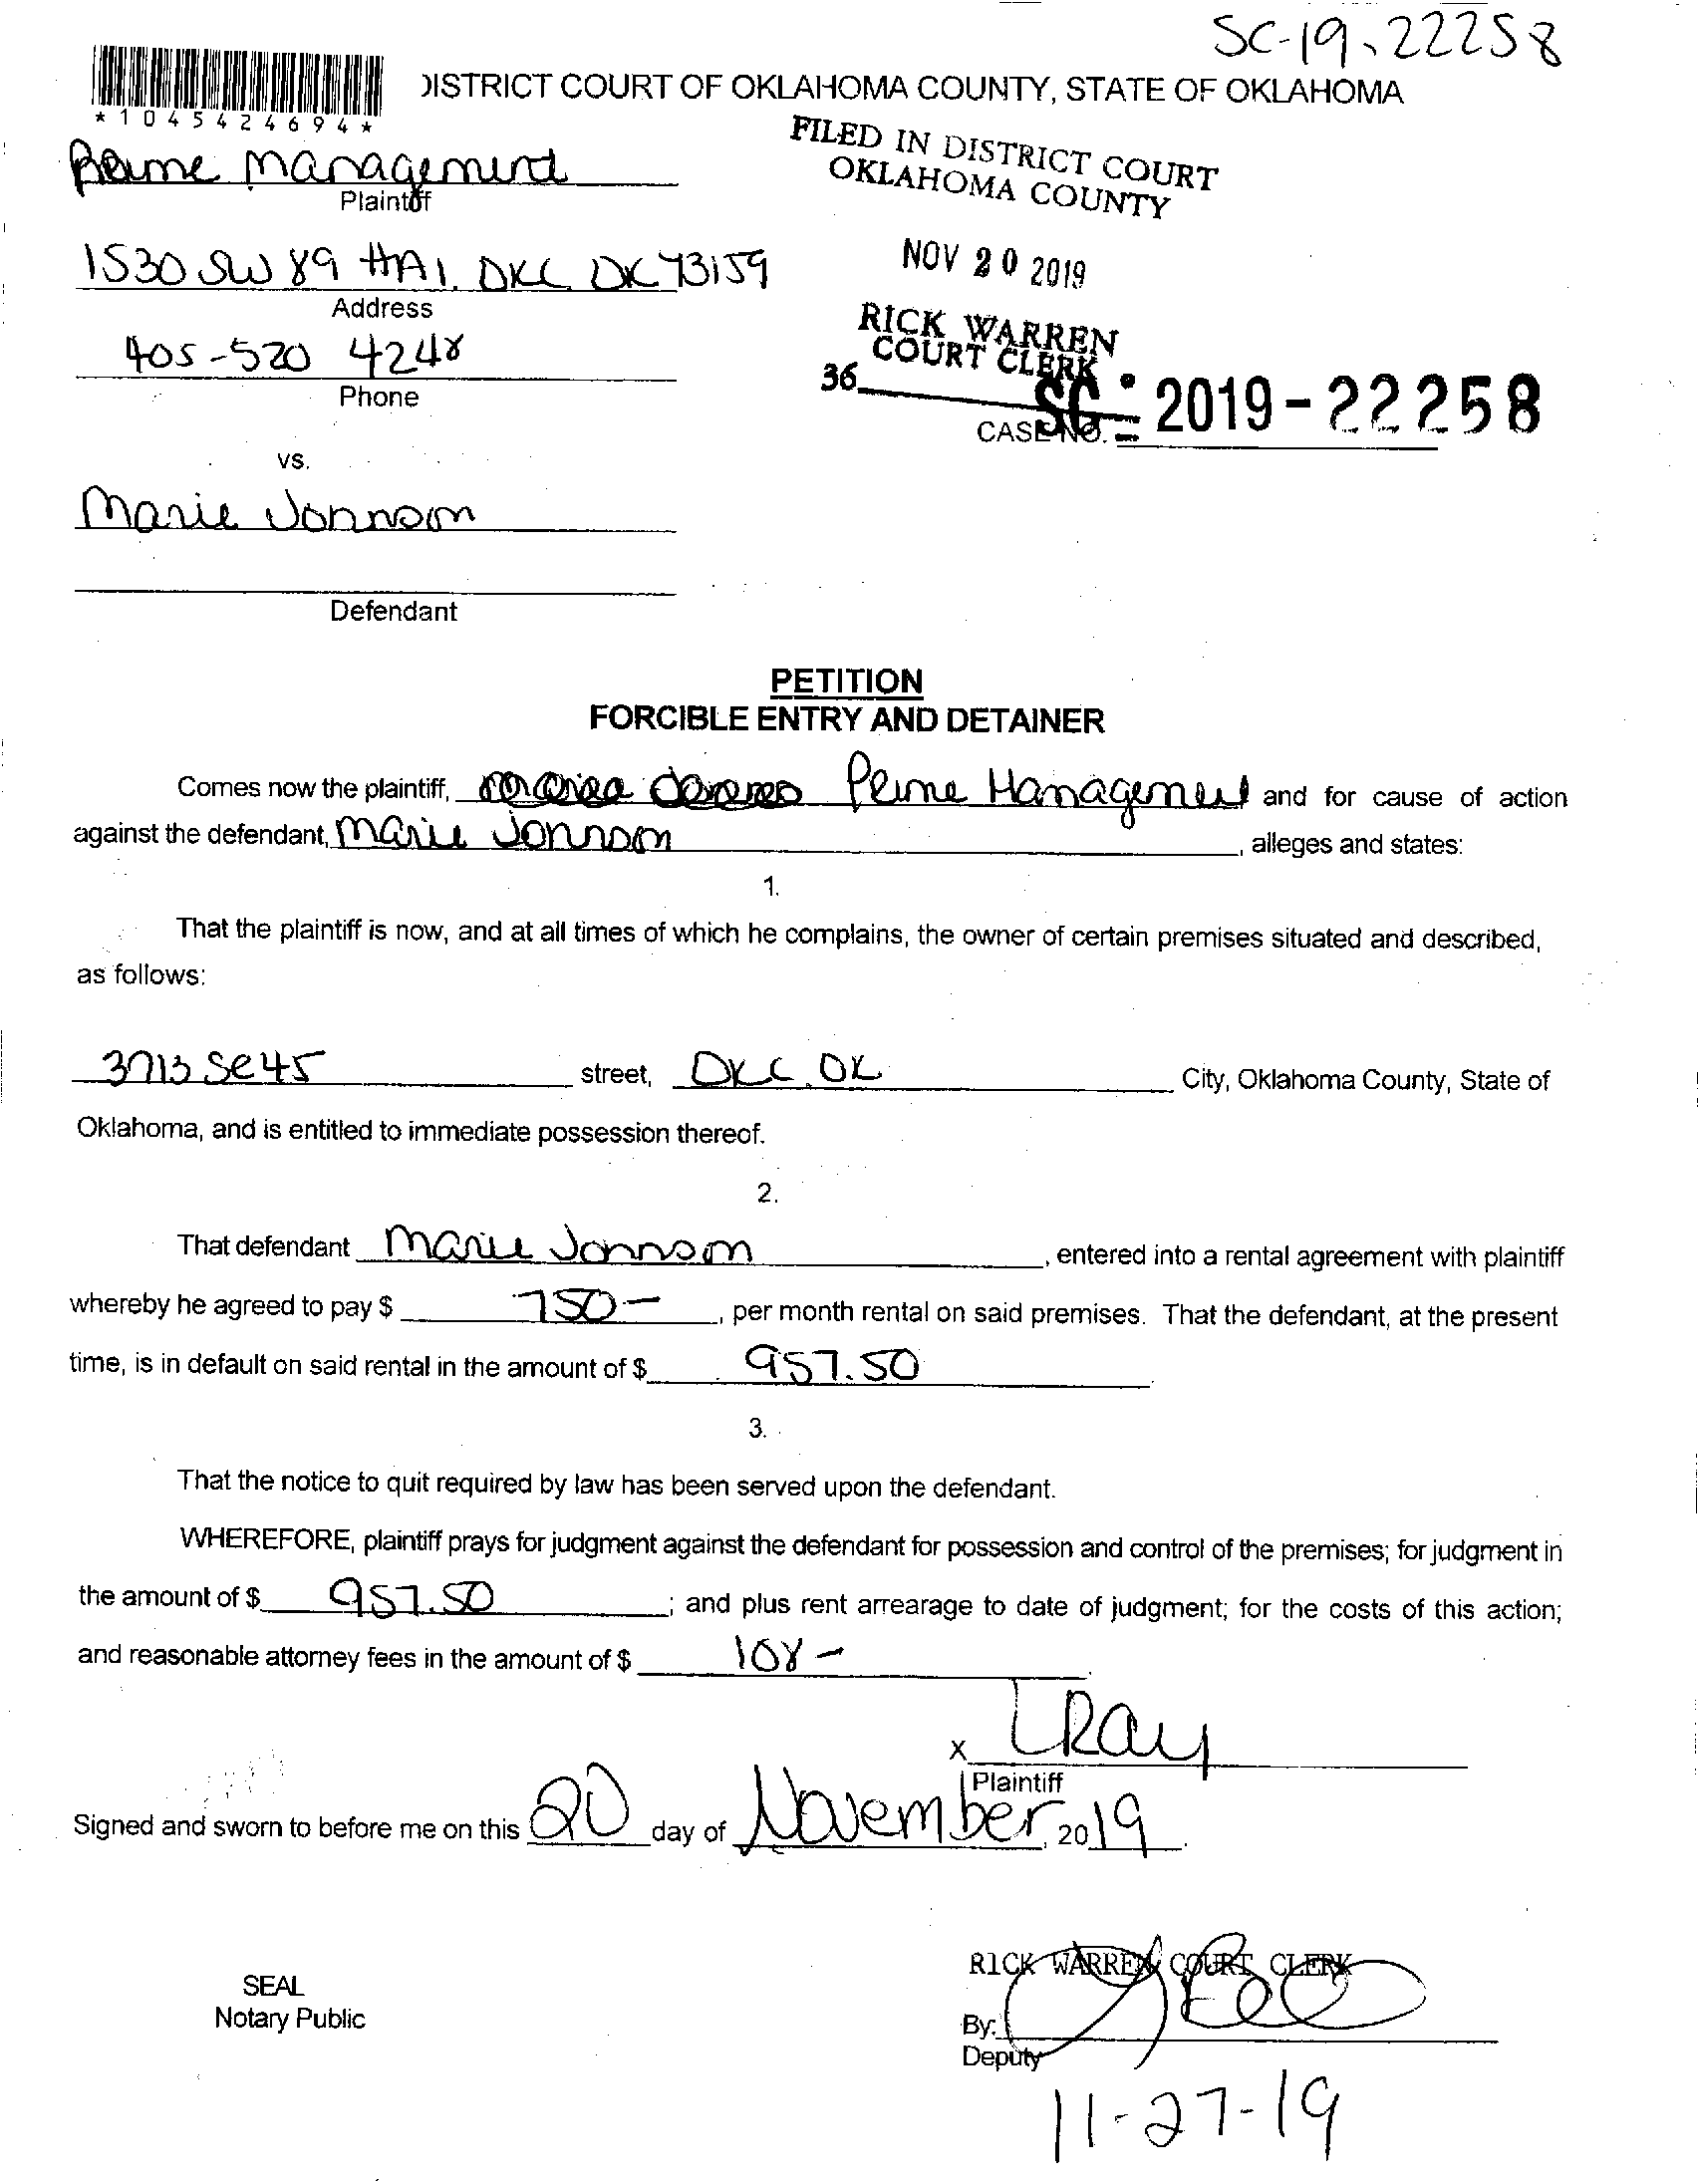 SC-19-22258
DISTRICT COURT OF OKLAHOMA COUNTY, STATE OF OKLAHOMA
*1045424694*
FILED IN DISTRICT COURT
OKLAHOMA COUNTY
Management
Plaintiff
1530 SW 89 #A1. OKC OK 73159
Address
NOV 20 2019
405-520 4248
Phone
RICK WARREN
COURT CLERK
36
CASE NO. SC - 2019-22258
vs.
Marie Johnson
Defendant
PETITION
FORCIBLE ENTRY AND DETAINER
Comes now the plaintiff, Management and for cause of action
against the defendant, Marie Johnson, alleges and states:
1.
That the plaintiff is now, and at all times of which he complains, the owner of certain premises situated and described,
as follows:
3713 SE 45 street, OKC, OK City, Oklahoma County, State of
Oklahoma, and is entitled to immediate possession thereof.
2.
That defendant Marie Johnson, entered into a rental agreement with plaintiff
whereby he agreed to pay $ 750-, per month rental on said premises. That the defendant, at the present
time, is in default on said rental in the amount of $ 957.50
3.
That the notice to quit required by law has been served upon the defendant.
WHEREFORE, plaintiff prays for judgment against the defendant for possession and control of the premises; for judgment in
the amount of $ 957.50; and plus rent arrearage to date of judgment; for the costs of this action;
and reasonable attorney fees in the amount of $ 108-
x LRay
Plaintiff
Signed and sworn to before me on this 20 day of November, 2019.
RICK WARREN COURT CLERK
SEAL
Notary Public
By:
Deputy
11-27-19